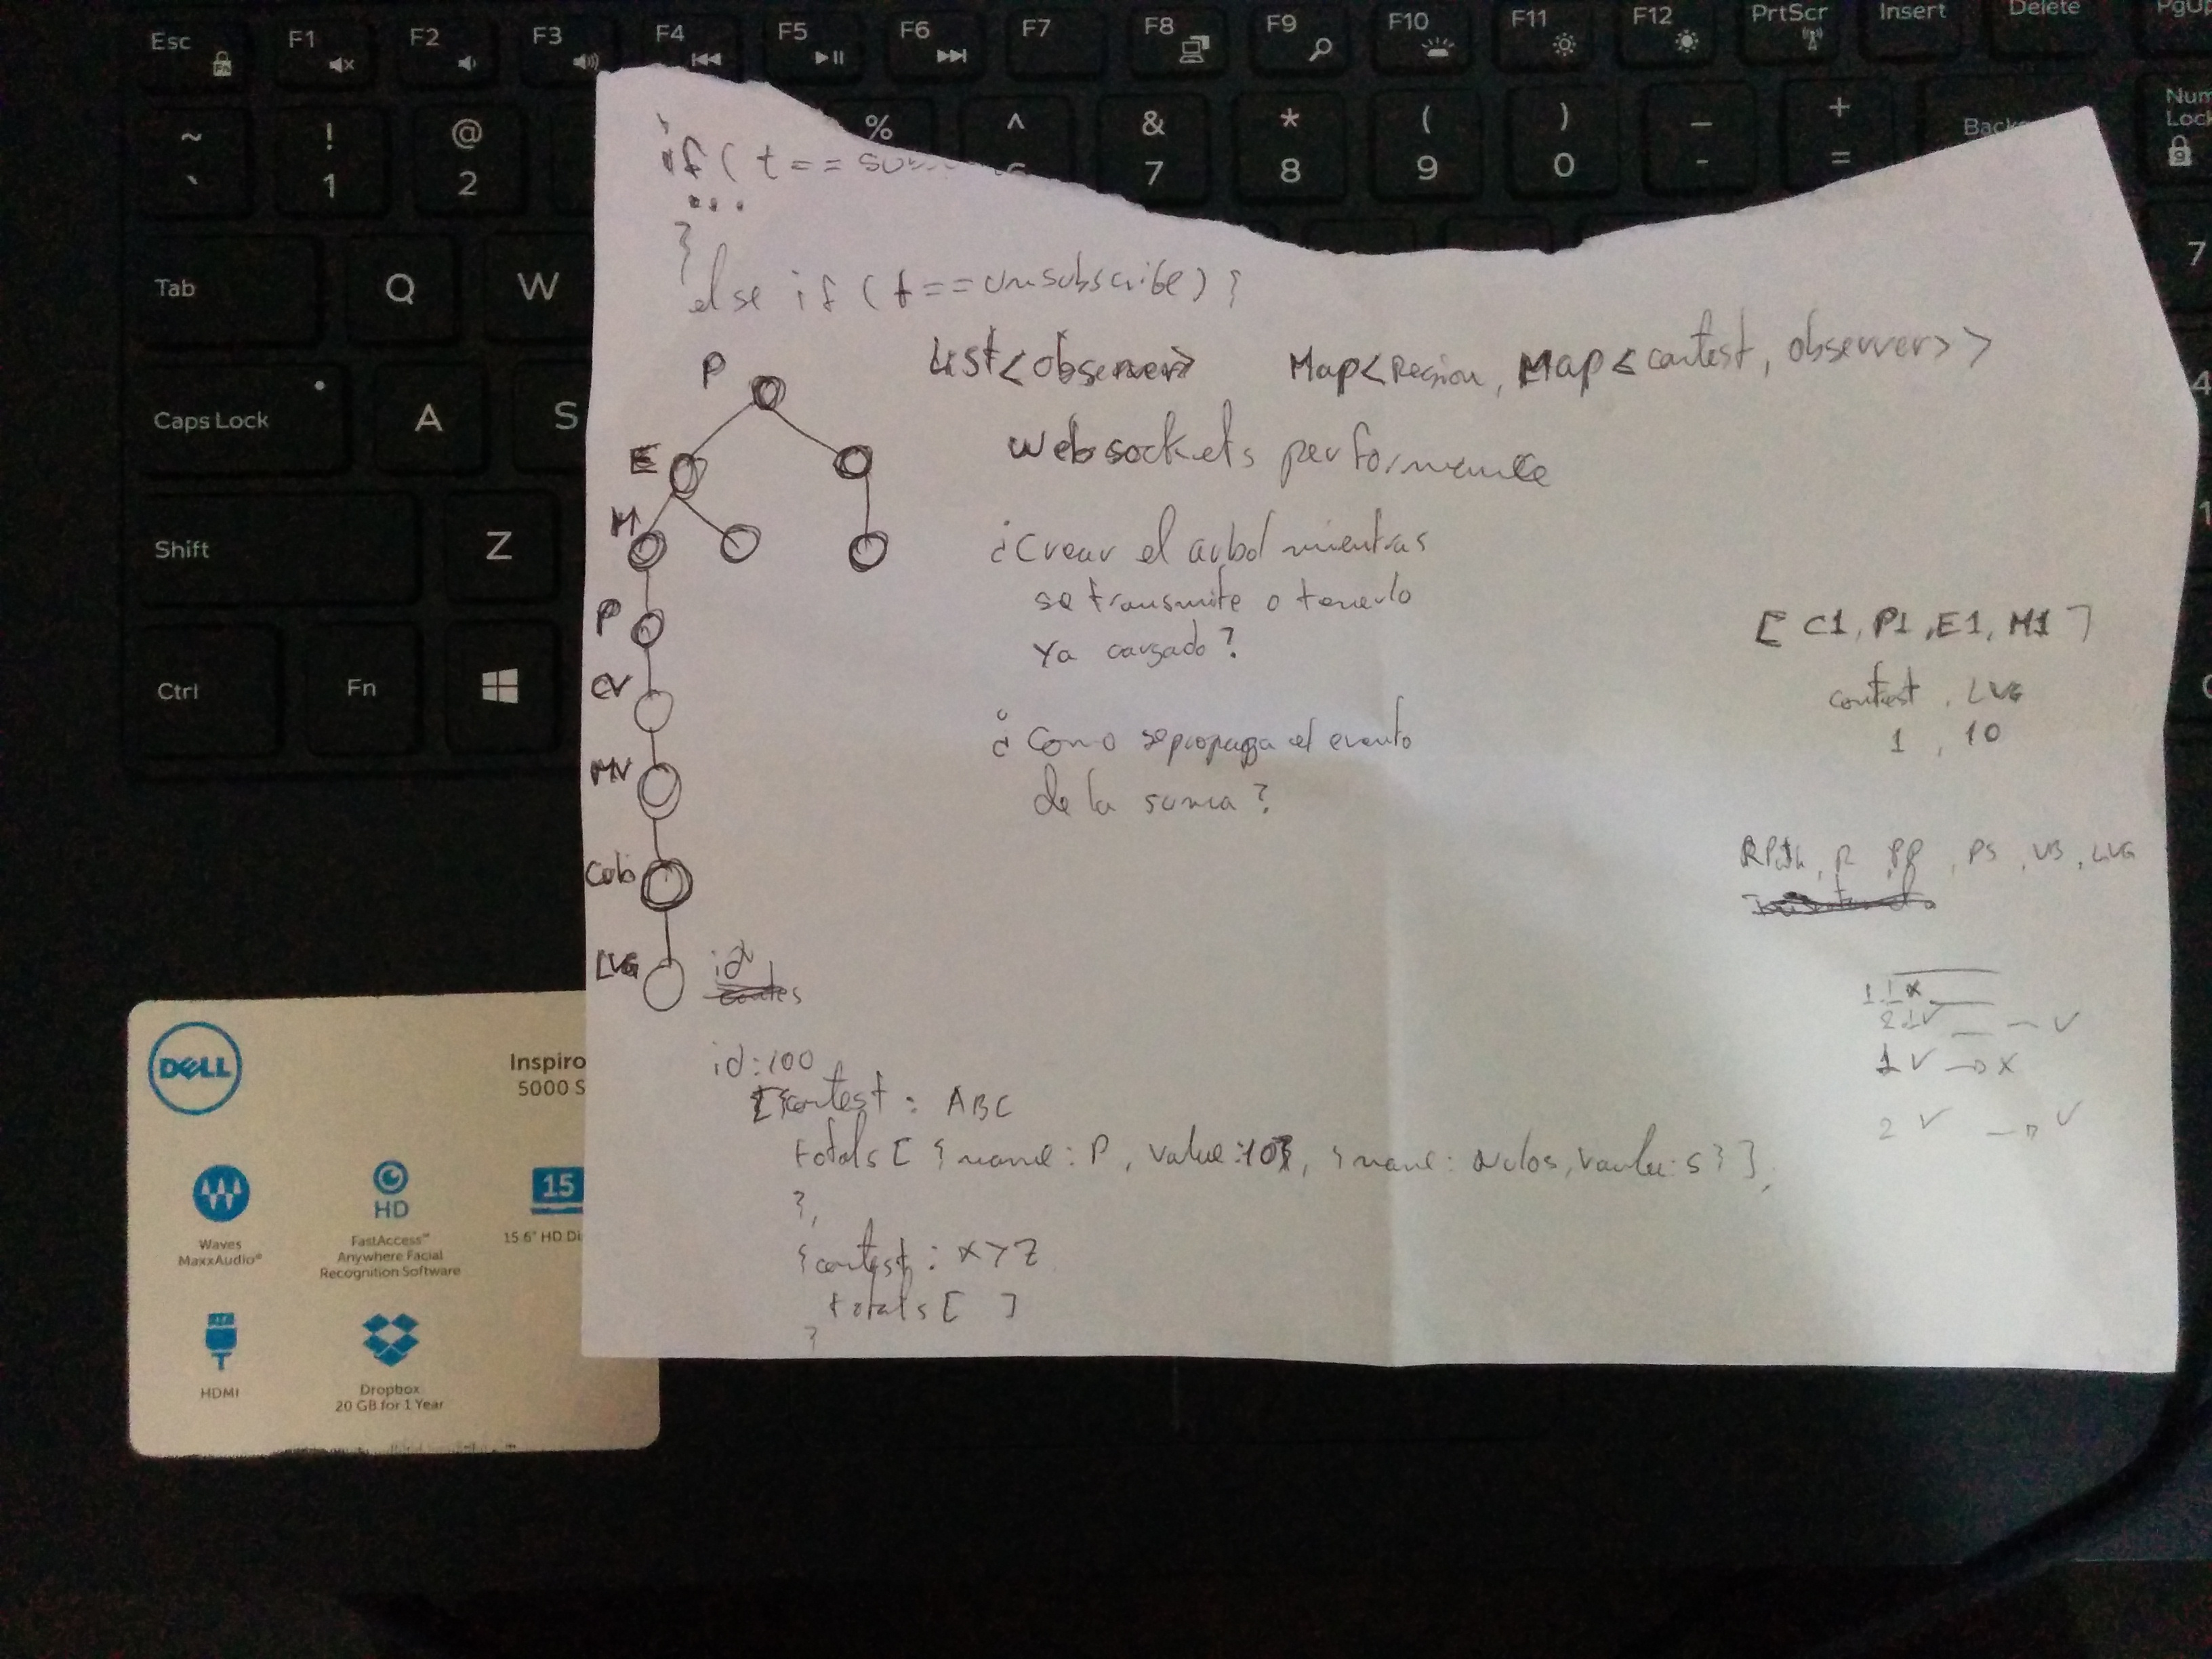 Esc F1 F2 F3 F4 F5 F6 F7 F8 F9 F10 F11 F12 PrtScr Insert Delete
~ ! @ % ^ & * ( ) _ + Num
` 1 2 7 8 9 0 - = Lock
Tab Q W 7
Caps Lock A S 4
Shift Z 1
Ctrl Fn
if ( t ==
...
}
else if ( t == unsubscribe) {
List<observer> Map<Region, Map<contest, observer>>
websockets performance
P
E
M
P
CV
MV
Cub
LVG id
¿Crear el arbol mientras
se transmite o tenerlo
ya cargado?
¿Como se propaga el evento
de la suma?
[ C1, P1, E1, M1 ]
contest, LVG
1, 10
RPath, P, PP, PS, VB, LVG
1 V → X
2 V → V
id:100
[{contest: ABC
totals [ {name: P, value:10}, {name: Nulos, vaule:5} ],
},
{contest: XYZ
totals [ ]
}
DELL
Inspiro
5000 S
Waves
MaxxAudio®
HD
FastAccess™
Anywhere Facial
Recognition Software
15
15.6" HD Di
HDMI
Dropbox
20 GB for 1 Year